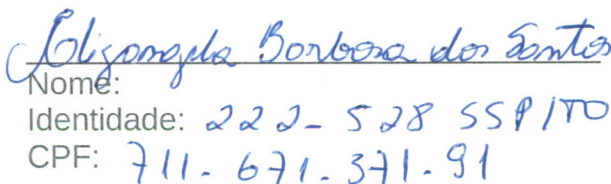 Elizangela Barbosa dos Santos
Nome:
Identidade: 222-528 SSP/TO
CPF: 711.671.371.91